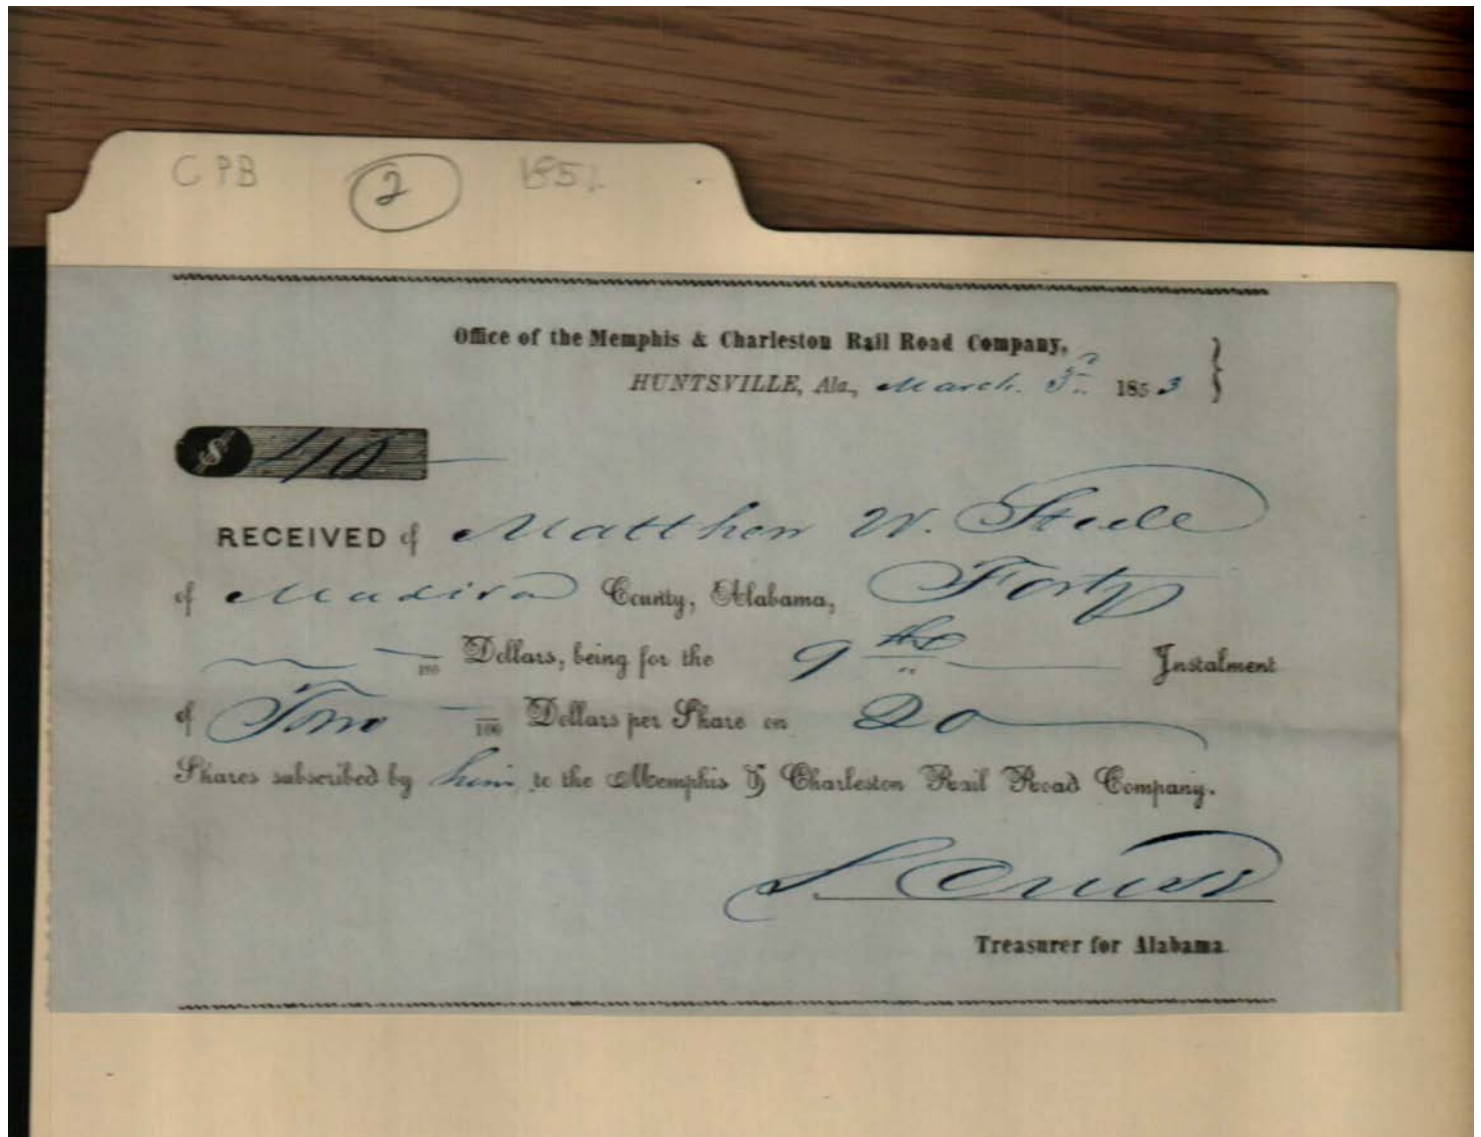 CPB 2 1851
Office of the Memphis & Charleston Rail Road Company,
HUNTSVILLE, Ala., March 5th 1853
$ 40
RECEIVED of Matthew W. Steele
of Madison County, Alabama, Forty
/100 Dollars, being for the 9th Instalment
of Two /100 Dollars per Share on 20
Shares subscribed by him to the Memphis & Charleston Rail Road Company.
S Cruse
Treasurer for Alabama.